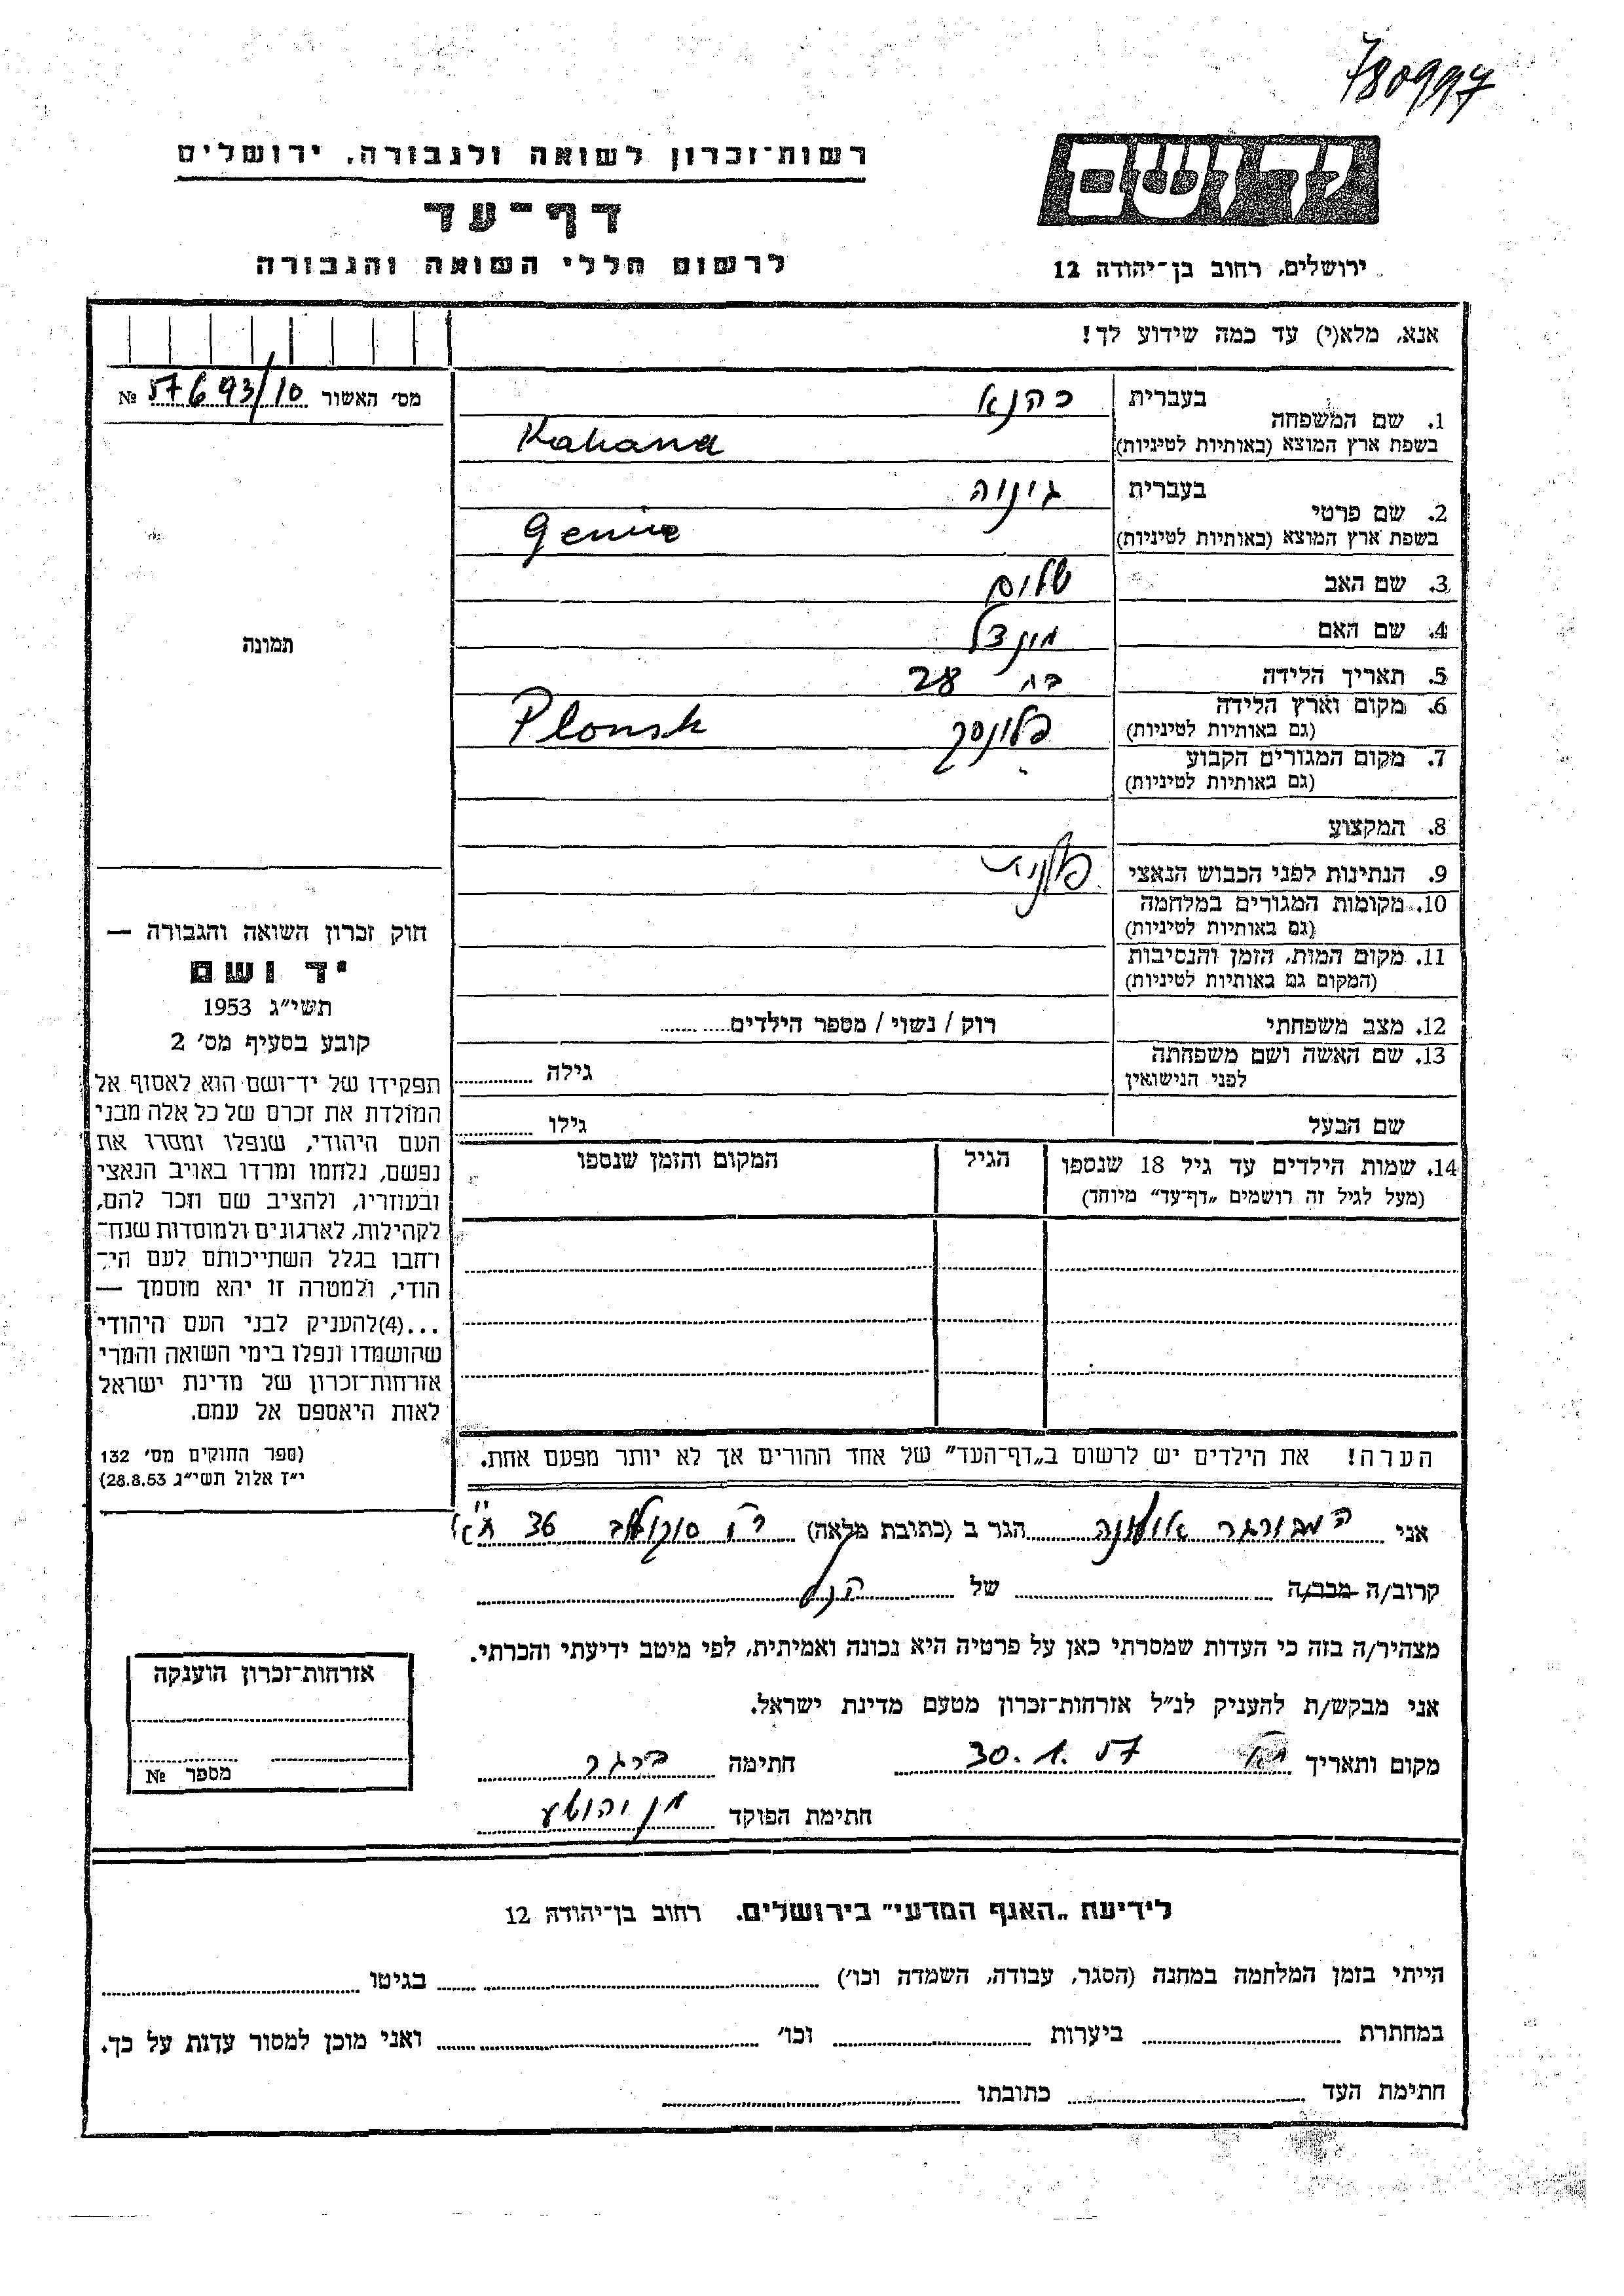 780997
ידושם
רשות־זכרון לשואה ולגבורה, ירושלים
דף־עד
לרשום חללי השואה והגבורה
ירושלים, רחוב בן־יהודה 12
אנא, מלא(י) עד כמה שידוע לך!
מס׳ האשור 57693/10 №
תמונה
1. שם המשפחה בעברית כהנא
בשפת ארץ המוצא (באותיות לטיניות) Kahana
2. שם פרטי בעברית
בשפת ארץ המוצא (באותיות לטיניות) Genia
3. שם האב שלום
4. שם האם
5. תאריך הלידה בת 28
6. מקום וארץ הלידה פלונסק Plonsk
(גם באותיות לטיניות)
7. מקום המגורים הקבוע
(גם באותיות לטיניות)
8. המקצוע
9. הנתינות לפני הכבוש הנאצי
10. מקומות המגורים במלחמה
(גם באותיות לטיניות)
11. מקום המות, הזמן והנסיבות
(המקום גם באותיות לטיניות)
12. מצב משפחתי רוק / נשוי / מספר הילדים
13. שם האשה ושם משפחתה
לפני הנישואין גילה
שם הבעל גילו
14. שמות הילדים עד גיל 18 שנספו הגיל המקום והזמן שנספו
(מעל לגיל זה רושמים „דף־עד” מיוחד)
הערה! את הילדים יש לרשום ב„דף־העד” של אחד ההורים אך לא יותר מפעם אחת.
חוק זכרון השואה והגבורה —
יד ושם
תשי״ג 1953
קובע בסעיף מס׳ 2
תפקידו של יד־ושם הוא לאסוף אל
המולדת את זכרם של כל אלה מבני
העם היהודי, שנפלו ומסרו את
נפשם, נלחמו ומרדו באויב הנאצי
ובעוזריו, ולהציב שם וזכר להם,
לקהילות, לארגונים ולמוסדות שנח־
רחבו בגלל השתייכותם לעם הי־
הודי, ולמטרה זו יהא מוסמך —
...(4)להעניק לבני העם היהודי
שהושמדו ונפלו בימי השואה והמרי
אזרחות־זכרון של מדינת ישראל
לאות היאספם אל עמם.
(ספר החוקים מס׳ 132
י״ז אלול תשי״ג 28.8.53)
אני המבורגר הגר ב (כתובת מלאה) רח סוקולוב 36 ת״א
קרוב/ה מכר/ה של
מצהיר/ה בזה כי העדות שמסרתי כאן על פרטיה היא נכונה ואמיתית, לפי מיטב ידיעתי והכרתי.
אני מבקש/ת להעניק לנ״ל אזרחות־זכרון מטעם מדינת ישראל.
מקום ותאריך 30.1.57 חתימה
חתימת הפוקד
אזרחות־זכרון הוענקה
מספר №
לידיעת „האגף המדעי” בירושלים. רחוב בן־יהודה 12
הייתי בזמן המלחמה במחנה (הסגר, עבודה, השמדה וכו׳) בגיטו
במחתרת ביערות וכו׳ ואני מוכן למסור עדות על כך.
חתימת העד כתובתו